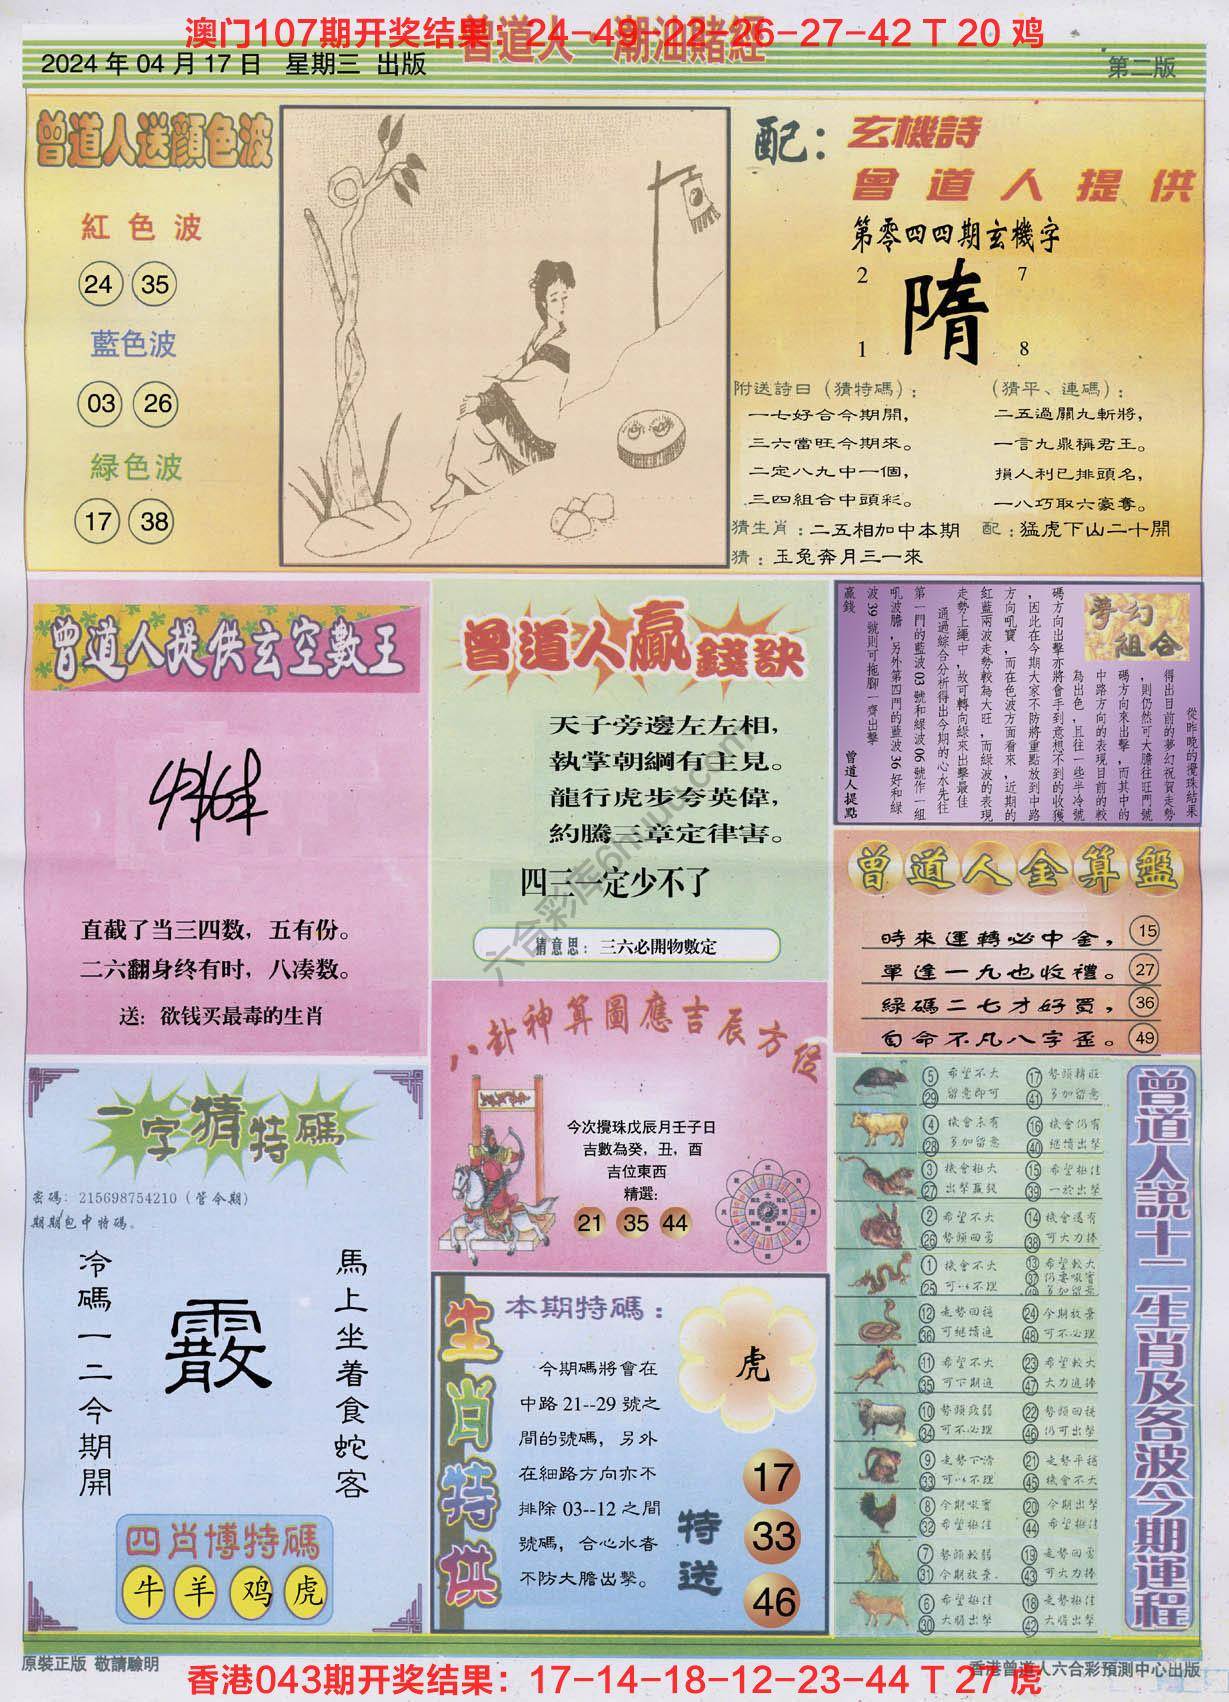 澳门107期开奖结果：24-49-22-26-27-42 T 20 鸡
曾道人·潮汕賭經
2024 年 04 月 17 日 星期三 出版
第二版
曾道人送顏色波
紅色波
24 35
藍色波
03 26
綠色波
17 38
配：玄機詩
曾道人提供
第零四四期玄機字
2 7
隋
1 8
附送詩日（猜特碼）：
一七好合今期開，
三六當旺今期來。
二定八九中一個，
三四組合中頭彩。
（猜平、連碼）：
二五過關九斬將，
一言九鼎稱君王。
損人利已排頭名，
一八巧取六豪奪。
猜生肖：二五相加中本期 配：猛虎下山二十開
猜：玉兔奔月三一來
曾道人提供玄空數王
直截了当三四数，五有份。
二六翻身终有时，八凑数。
送：欲钱买最毒的生肖
曾道人贏錢訣
天子旁邊左左相，
執掌朝綱有主見。
龍行虎步夸英偉，
約騰三章定律害。
四三一定少不了
猜意思：三六必開物數定
六合彩库6huu.com
夢幻組合
從昨晚的攪珠結果
得出目前的夢幻祝賀走勢
，則仍然可大膽往旺門號
碼方向來出擊，而其中的
中路方向的表現目前的較
為出色，且往一些半冷號
碼方向出擊亦將會手到意想不到的收獲
，因此在今期大家不防將重點放到中路
方向吼寶，而在色波方面看來，近期的
紅藍兩波走勢較為大旺，而綠波的表現
走勢上繩中，故可轉向綠來出擊最佳
通過綜合分析得出今期的心水先往
第一門的藍波 03 號和綠波 06 號作一組
吼波膽，另外第四門的藍波 36 好和綠
波 39 號則可拖腳一齊出擊
贏錢
曾道人提點
曾道人金算盤
時來運轉必中金， 15
單逢一九也收禮。 27
綠碼二七才好買， 36
自命不凡八字歪。 49
八卦神算圖應吉辰方位
今次攪珠戊辰月壬子日
吉數為癸，丑，酉
吉位東西
精選：
21 35 44
一字猜特碼
密碼：215698754210（管今期）
期期包中特碼。
冷碼一二今期開
馬上坐着食蛇客
四肖博特碼
牛 羊 鸡 虎
生肖特供
本期特碼：
虎
今期碼將會在
中路 21--29 號之
間的號碼，另外
在細路方向亦不
排除 03--12 之間
號碼，合心水者
不防大膽出擊。
特送
17
33
46
曾道人説十二生肖及各波今期運程
5 希望不大 17 勢頭轉旺
29 留意即可 41 多加留意
4 機會未有 16 機會仍有
28 多加留意 40 繼續出擊
3 機會極大 15 希望極佳
27 出擊贏錢 39 一於出擊
2 希望不大 14 機會還有
26 勢頭回勇 38 可大力捧
1 機會不大 13 希望較大
25 可以不理
12 走勢回穩 24 今期放棄
36 可繼續追 48 可不必理
11 希望不大 23 希望較大
35 可下期追 47 大力追捧
10 勢頭致弱 22 勢頭回穩
34 可不必理 46 仍可出擊
9 走勢下滑 21 走勢平穩
33 可以不理 45 機會不大
8 今期吼寶 20 今期出擊
32 希望極佳 44 希望極佳
7 勢頭較弱 19 走勢回勇
31 今期放棄. 43 可大力捧
6 希望極佳 18 走勢極佳
30 大膽出擊 42 大膽出擊
原裝正版 敬請驗明
香港曾道人六合彩預測中心出版
香港043期开奖结果：17-14-18-12-23-44 T 27 虎